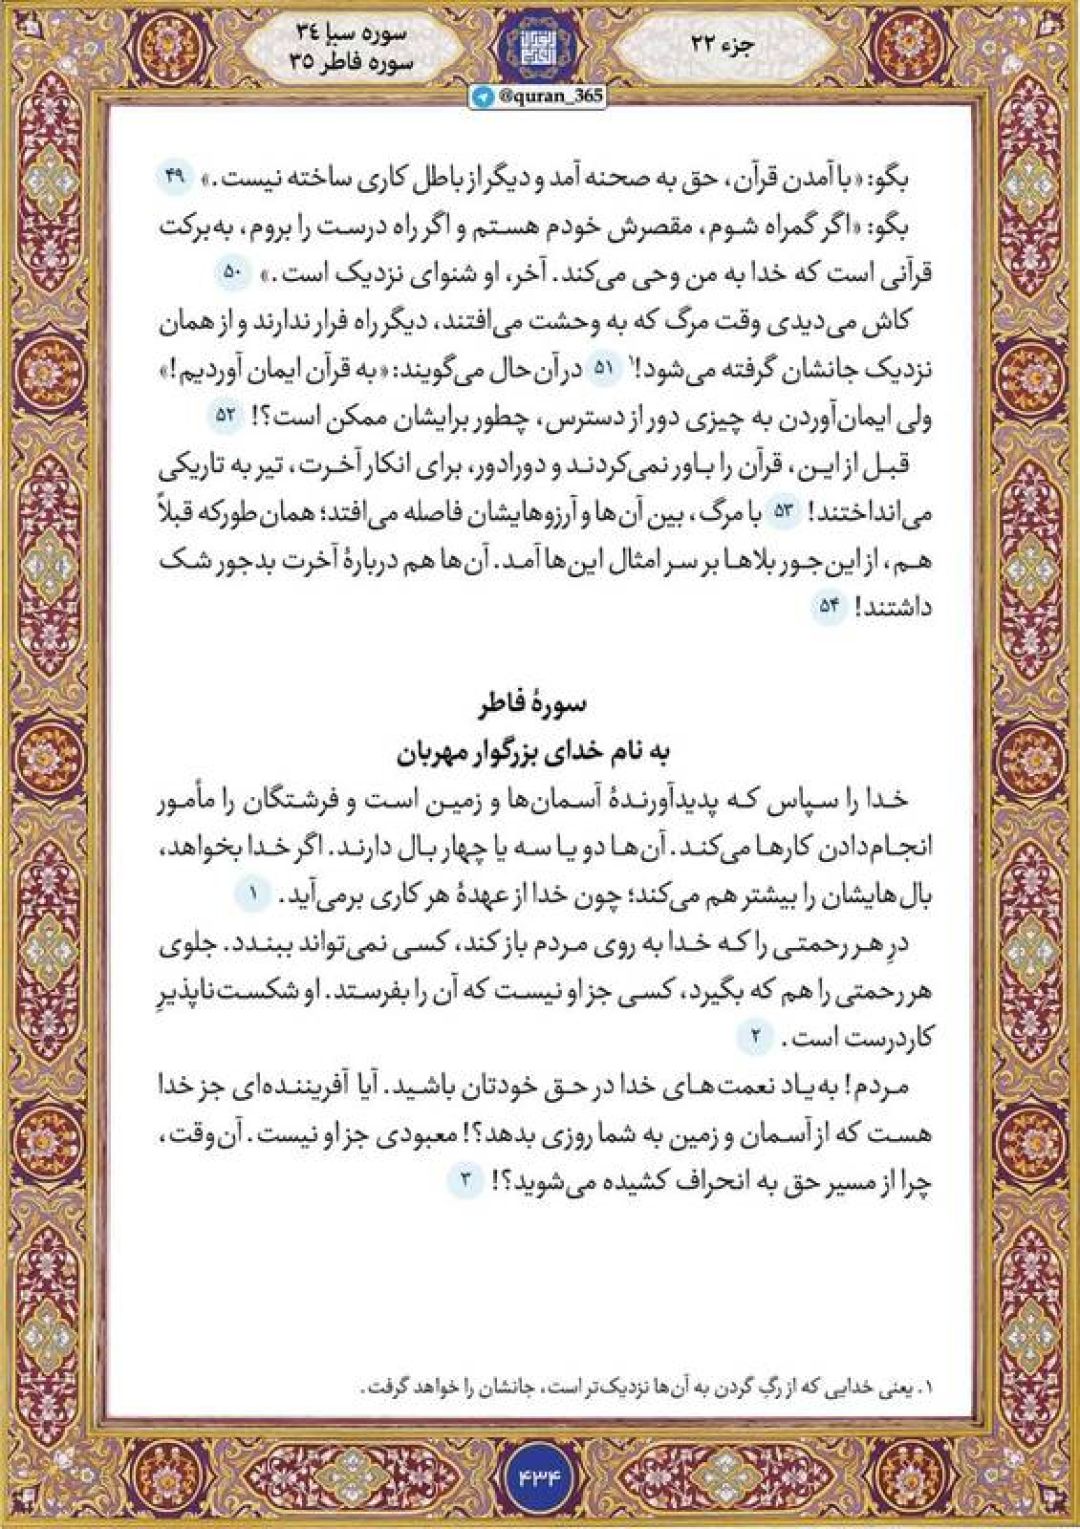 جزء ۲۲
سوره سبإ ۳۴
سوره فاطر ۳۵
@quran_365
بگو: «با آمدن قرآن، حق به صحنه آمد و دیگر از باطل کاری ساخته نیست.» ۴۹
بگو: «اگر گمراه شوم، مقصرش خودم هستم و اگر راه درست را بروم، به‌برکت
قرآنی است که خدا به من وحی می‌کند. آخر، او شنوای نزدیک است.» ۵۰
کاش می‌دیدی وقت مرگ که به وحشت می‌افتند، دیگر راه فرار ندارند و از همان
نزدیک جانشان گرفته می‌شود!۱ ۵۱ در آن حال می‌گویند: «به قرآن ایمان آوردیم!»
ولی ایمان‌آوردن به چیزی دور از دسترس، چطور برایشان ممکن است؟! ۵۲
قبل از این، قرآن را باور نمی‌کردند و دورادور، برای انکار آخرت، تیر به تاریکی
می‌انداختند! ۵۳ با مرگ، بین آن‌ها و آرزوهایشان فاصله می‌افتد؛ همان‌طورکه قبلاً
هم، از این‌جور بلاها بر سر امثال این‌ها آمد. آن‌ها هم دربارهٔ آخرت بدجور شک
داشتند! ۵۴
سورهٔ فاطر
به نام خدای بزرگوار مهربان
خدا را سپاس که پدیدآورندهٔ آسمان‌ها و زمین است و فرشتگان را مأمور
انجام‌دادن کارها می‌کند. آن‌ها دو یا سه یا چهار بال دارند. اگر خدا بخواهد،
بال‌هایشان را بیشتر هم می‌کند؛ چون خدا از عهدهٔ هر کاری برمی‌آید. ۱
درِ هر رحمتی را که خدا به روی مردم باز کند، کسی نمی‌تواند ببندد. جلوی
هر رحمتی را هم که بگیرد، کسی جز او نیست که آن را بفرستد. او شکست‌ناپذیرِ
کاردرست است. ۲
مردم! به‌یاد نعمت‌های خدا در حق خودتان باشید. آیا آفریننده‌ای جز خدا
هست که از آسمان و زمین به شما روزی بدهد؟! معبودی جز او نیست. آن‌وقت،
چرا از مسیر حق به انحراف کشیده می‌شوید؟! ۳
۱. یعنی خدایی که از رگِ گردن به آن‌ها نزدیک‌تر است، جانشان را خواهد گرفت.
۴۳۴